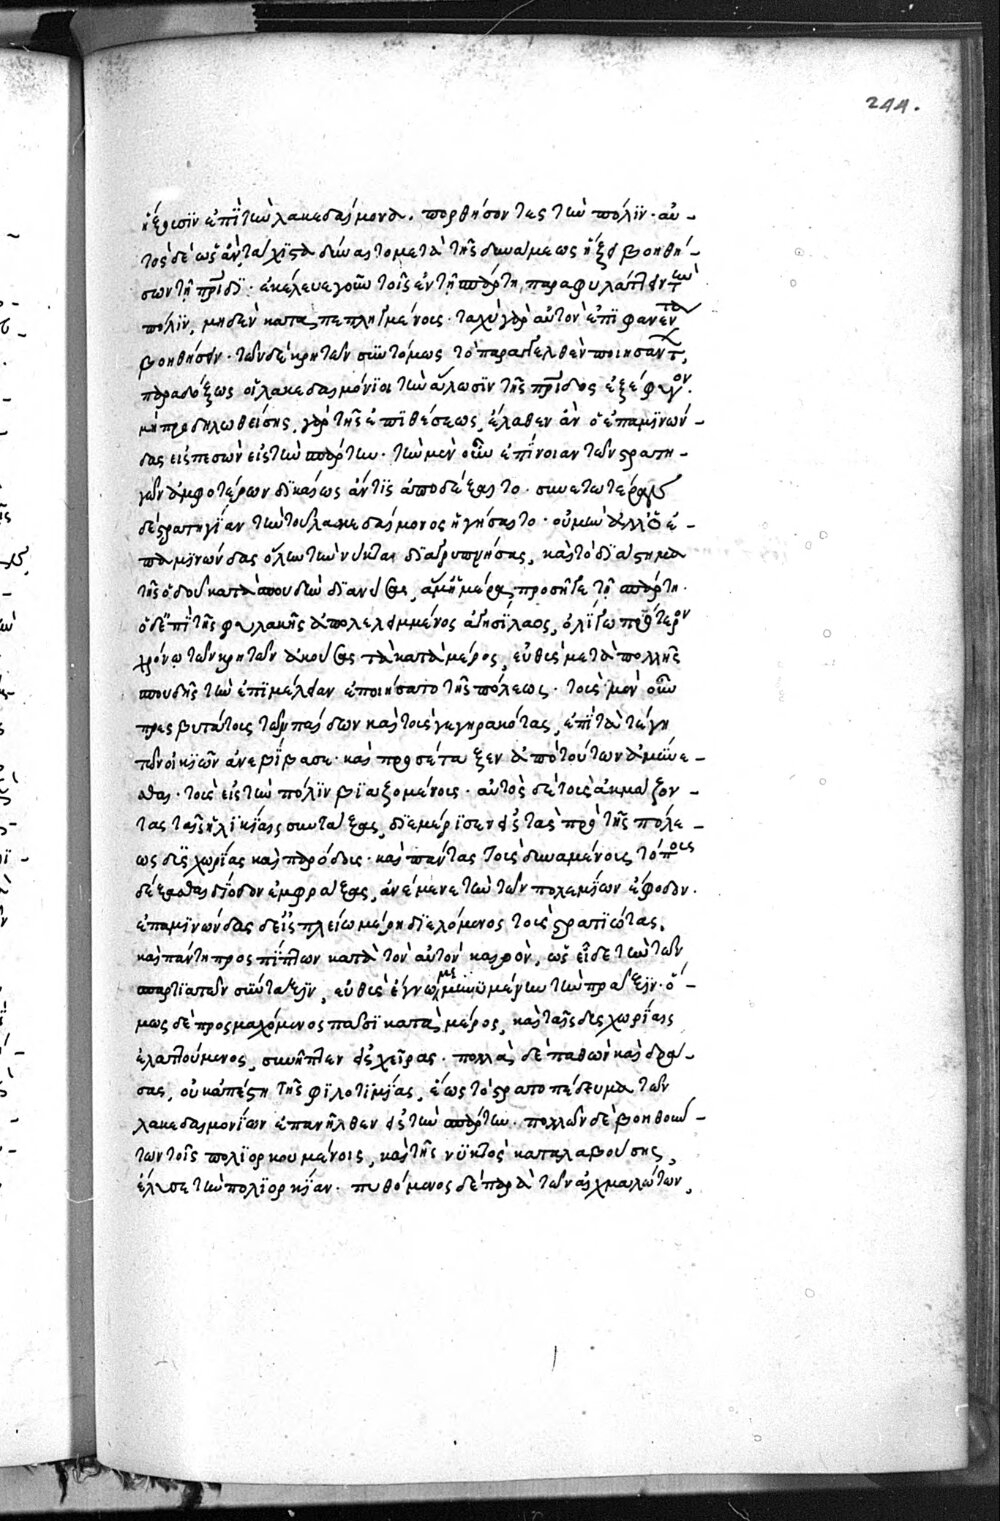 244.
ἥξουσιν ἐπὶ τὴν λακεδαίμονα, πορθήσοντες τὴν πόλιν· αὐ-
τὸς δὲ ὡς ἂν τάχιστα δύναιτο μετὰ τῆς δυνάμεως ἥξει βοηθή-
σων τῇ πατρίδι· ἐκέλευε γοῦν τοῖς ἐν τῇ σπάρτῃ παραφυλάττειν τὴν
πόλιν, μηδὲν καταπεπληγμένοις· ταχὺ γὰρ αὐτὸν ἐπιφανέντα
βοηθήσειν· τῶν δὲ κρητῶν συντόμως τὸ παραγγελθὲν ποιησάντων,
παραδόξως οἱ λακεδαιμόνιοι τὴν ἅλωσιν τῆς πατρίδος ἐξέφυγον.
μὴ προδηλωθείσης γὰρ τῆς ἐπιθέσεως, ἔλαθεν ἂν ὁ ἐπαμινών-
δας εἰσπεσὼν εἰς τὴν σπάρτην· τὴν μὲν οὖν ἐπίνοιαν τῶν στρατη-
γῶν ἀμφοτέρων δικαίως ἄν τις ἀποδέξαιτο· συνετωτέραν
δὲ στρατηγίαν τὴν τοῦ λακεδαίμονος ἡγήσαιτο· οὐ μὴν ἀλλ' ὁ ἐ-
παμινώνδας ὅλην τὴν νύκτα διαγρυπνήσας, καὶ τὸ διάστημα
τῆς ὁδοῦ κατὰ σπουδὴν διανύσας, ἅμ' ἡμέρᾳ προσῆγε τῇ σπάρτῃ.
ὁ δ' ἐπὶ τῆς φυλακῆς ἀπολελειμμένος ἀγησίλαος, ὀλίγῳ πρότερον
χρόνῳ τῶν κρητῶν ἀκούσας τὰ κατὰ μέρος, εὐθὺς μετὰ πολλῆς
σπουδῆς τὴν ἐπιμέλειαν ἐποιήσατο τῆς πόλεως· τοὺς μὲν οὖν
πρεσβυτάτους τῶν παίδων καὶ τοὺς γεγηρακότας, ἐπὶ τὰ τέγη
τῶν οἰκιῶν ἀνεβίβασε· καὶ προσέταξεν ἀπὸ τούτων ἀμύνε-
σθαι· τοὺς εἰς τὴν πόλιν βιαζομένους· αὐτὸς δὲ τοὺς ἀκμάζον-
τας ταῖς ἡλικίαις συντάξας, διεμέρισεν εἰς τὰς πρὸ τῆς πόλε-
ως δυσχωρίας καὶ παρόδους· καὶ πάντας τοὺς δυναμένους τόπους
δέξασθαι δίοδον ἐμφράξας, ἀνέμενε τὴν τῶν πολεμίων ἔφοδον.
ἐπαμινώνδας δ' εἰς πλείω μέρη διελόμενος τοὺς στρατιώτας,
καὶ πάντη προσπίπτων κατὰ τὸν αὐτὸν καιρὸν, ὡς εἶδε τὴν τῶν
σπαρτιατῶν σύνταξιν, εὐθὺς ἔγνω μεμηνυμένην τὴν πρᾶξιν· ὅ-
μως δὲ προσμαχόμενος πᾶσι κατὰ μέρος, καὶ ταῖς δυσχωρίαις
ἐλαττούμενος, συνῆπτεν εἰς χεῖρας· πολλὰ δὲ παθὼν καὶ δρά-
σας, οὐκ ἀπέστη τῆς φιλοτιμίας, ἕως τὸ στρατόπεδευμα τῶν
λακεδαιμονίων ἐπανῆλθεν εἰς τὴν σπάρτην· πολλῶν δὲ βοηθούν-
των τοῖς πολιορκουμένοις, καὶ τῆς νυκτὸς καταλαβούσης,
ἔλυσε τὴν πολιορκίαν· πυθόμενος δὲ παρὰ τῶν αἰχμαλώτων,